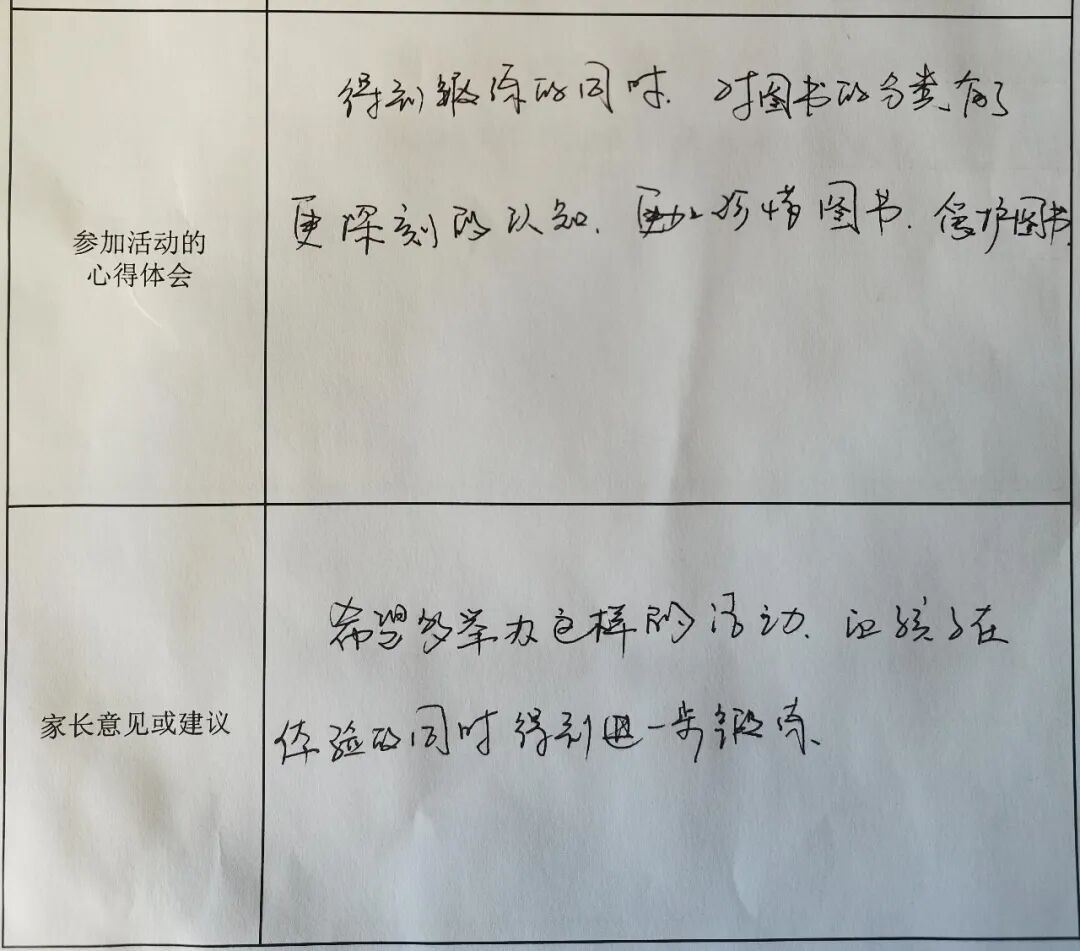 参加活动的
心得体会
得到锻练的同时、对图书的分类、有了
更深刻的认知、更加珍惜图书、爱护图书、
家长意见或建议
希望多举办这样的活动、让孩子在
体验的同时得到进一步锻练、